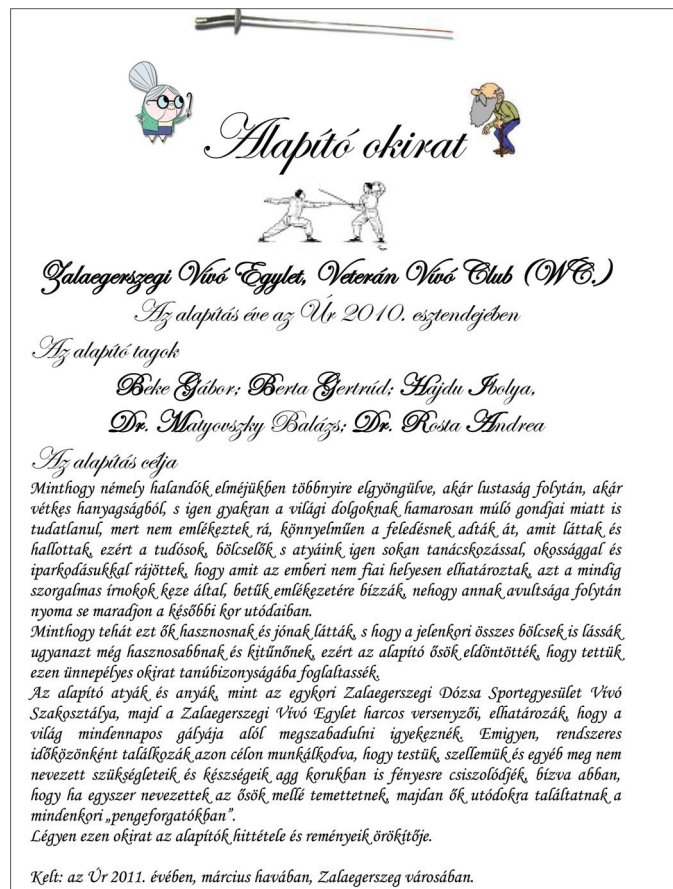 Alapító okirat
Zalaegerszegi Vívó Egylet, Veterán Vívó Club (WC.)
Az alapítás éve az Úr 2010. esztendejében
Az alapító tagok
Beke Gábor; Berta Gertrúd; Hajdu Ibolya,
Dr. Matyovszky Balázs; Dr. Rosta Andrea
Az alapítás célja
Minthogy némely halandók elméjükben többnyire elgyöngülve, akár lustaság folytán, akár
vétkes hanyagságból, s igen gyakran a világi dolgoknak hamarosan múló gondjai miatt is
tudatlanul, mert nem emlékeztek rá, könnyelműen a feledésnek adták át, amit láttak és
hallottak, ezért a tudósok, bölcselők s atyáink igen sokan tanácskozással, okossággal és
iparkodásukkal rájöttek, hogy amit az emberi nem fiai helyesen elhatároztak, azt a mindig
szorgalmas írnokok keze által, betűk emlékezetére bízzák, nehogy annak avultsága folytán
nyoma se maradjon a későbbi kor utódaiban.
Minthogy tehát ezt ők hasznosnak és jónak látták, s hogy a jelenkori összes bölcsek is lássák
ugyanazt még hasznosabbnak és kitűnőnek, ezért az alapító ősök eldöntötték, hogy tettük
ezen ünnepélyes okirat tanúbizonyságába foglaltassék.
Az alapító atyák és anyák, mint az egykori Zalaegerszegi Dózsa Sportegyesület Vívó
Szakosztálya, majd a Zalaegerszegi Vívó Egylet harcos versenyzői, elhatározák, hogy a
világ mindennapos gályája alól megszabadulni igyekeznék. Emigyen, rendszeres
időközönként találkozák azon célon munkálkodva, hogy testük, szellemük és egyéb meg nem
nevezett szükségleteik és készségeik agg korukban is fényesre csiszolódjék, bízva abban,
hogy ha egyszer nevezettek az ősök mellé temettetnek, majdan ők utódokra találtatnak a
mindenkori „pengeforgatókban”.
Légyen ezen okirat az alapítók hittétele és reményeik örökítője.
Kelt: az Úr 2011. évében, március havában, Zalaegerszeg városában.